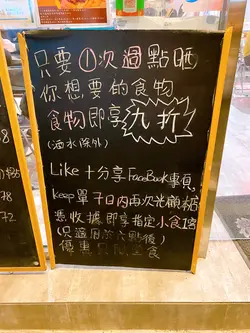 只要①次過點晒
你想要的食物
食物即享九折
(酒水除外)
Like+分享FaceBook專頁,
keep單7日內再次光顧
憑收據即享指定小食1客
(只適用於六點後)
優惠只限堂食
78
72